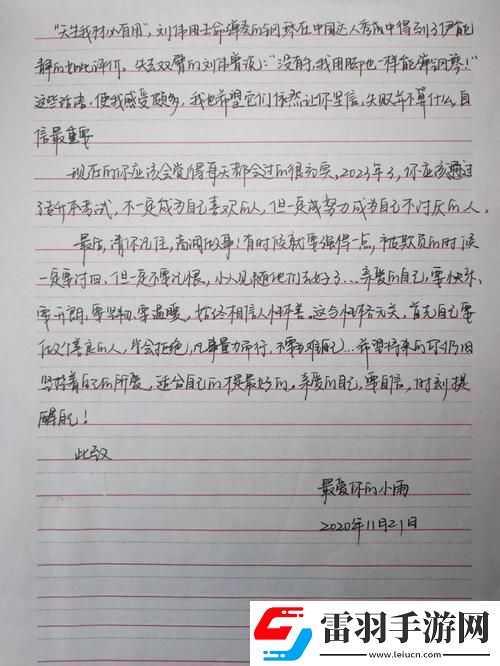 "天生我材必有用",刘伟用生命弹奏的钢琴在中国达人秀成中得到了伊能
静的如此评价。失去双臂的刘伟曾说:"没有手,我用脚也一样能弹钢琴!"
这些话语,使我感受颇多,我也希望它们依然让你坚信,失败并不算什么,自
信最重要
现在的你应该会觉得每天都会过的很充实,2023年了,你应该通过
专升本考试,不一定成为自己喜欢的人,但一定成努力成为自己不讨厌的人。
最后,请你记住,高调做事!有时候就要强得一点,被欺负的时候
一定要讨回,但一定不要记恨,小人见随他们去好了…亲爱的自己,要快乐、
要开朗、要坚韧、要温暖,始终相信人性本善。这与性格无关,首先自己要
做个善良的人,学会拒绝,凡事量力而行,不要为难自己…希望将来的你仍旧
坚持着自己的所爱,适合自己的模最好的。亲爱的自己,要自信,时刻提
醒自己!
此致
最爱你的小雨
2020年11月21日
雷羽手游网
www.leiucn.com